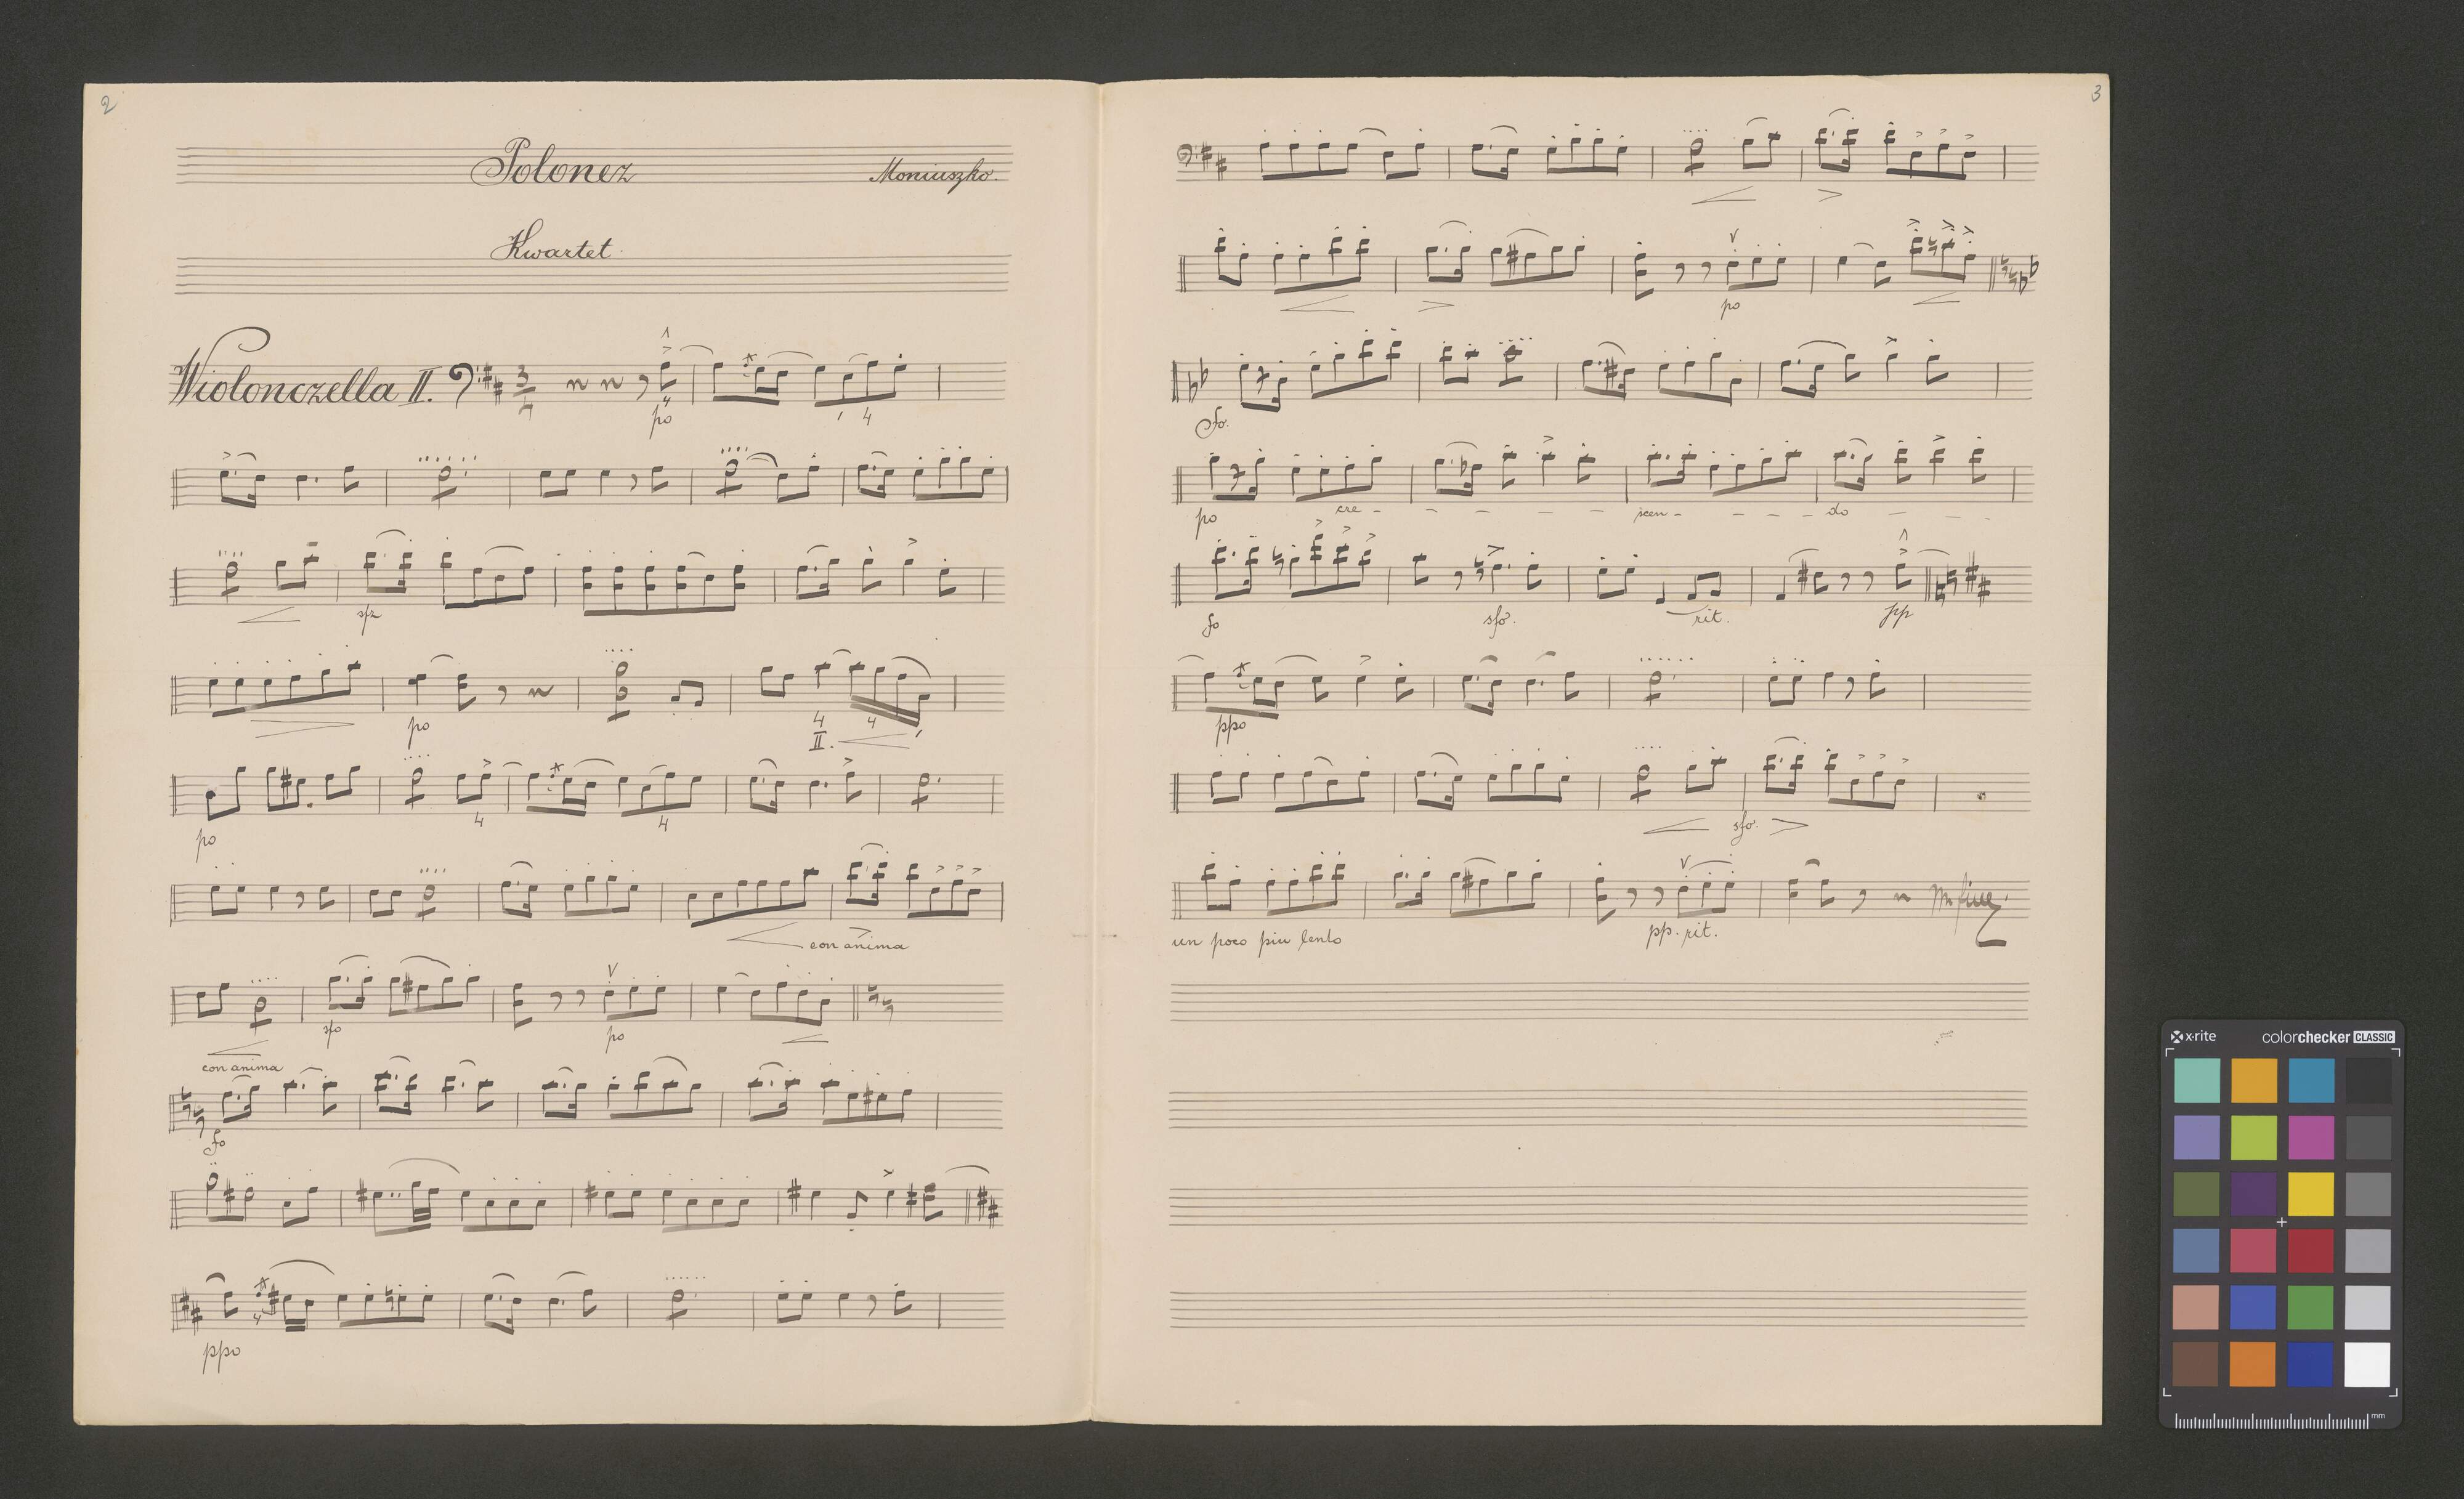 2
Polonez
Moniuszko.
Kwartet.
Wiolonczella II.
3
4
po
4
sfz
po
4
II.
4
po
4
4
con anima
sfo
po
con anima
fo
4
ppo
3
po
fo.
po cre - - - - - scen - - - - do - - -
fo sfo. rit. pp
ppo
sfo.
un poco piu lento pp. rit.
fine
x-rite colorchecker CLASSIC
mm